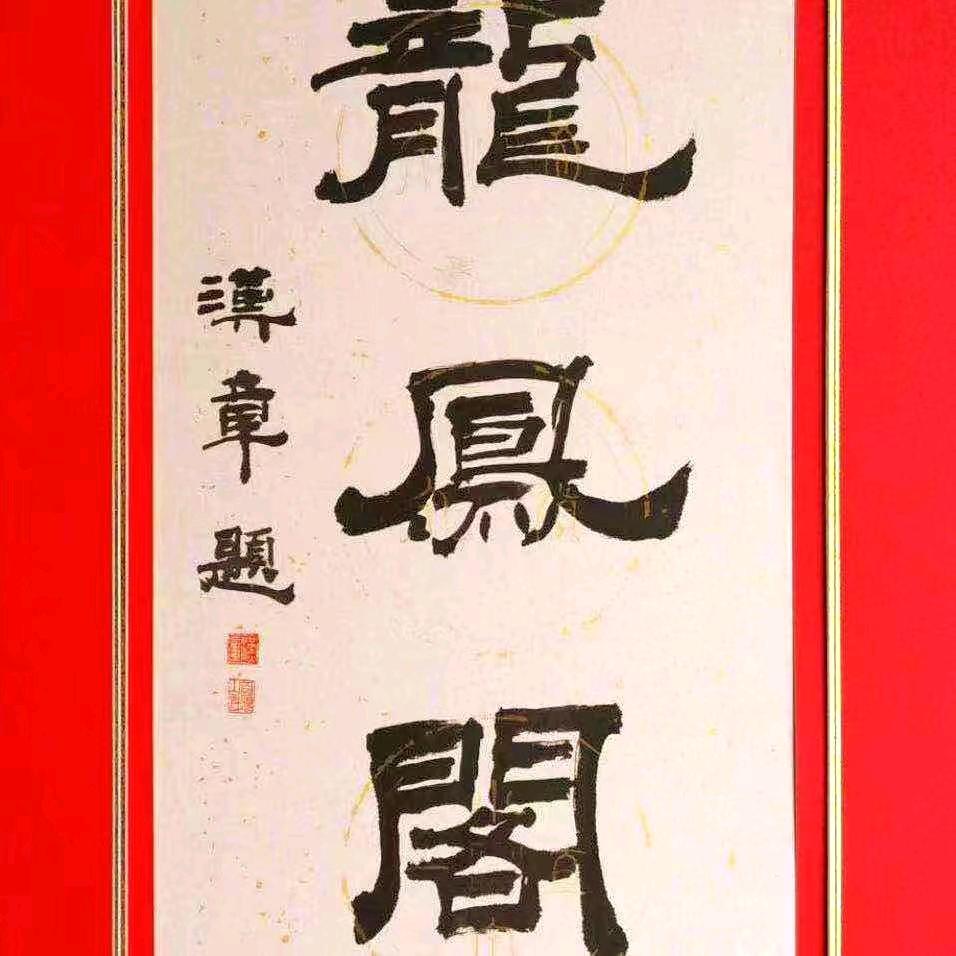 龍鳳閣
漢章題